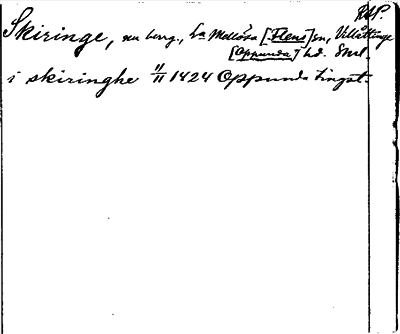 RAP.
Skiringe, nu herg., La Mellösa [Flens] sn, Villåttinge
[Oppunda] hd. Sml.
i skiringhe 11/11 1424 Oppunda tingst.